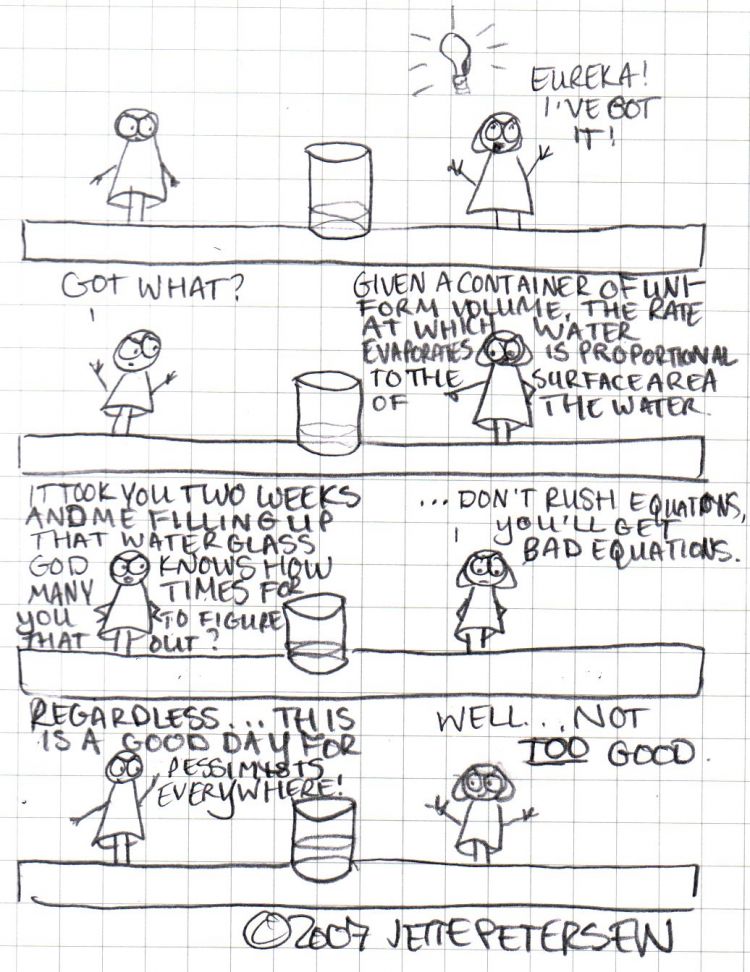 EUREKA!
I'VE GOT
IT!
GOT WHAT?
GIVEN A CONTAINER OF UNI-
FORM VOLUME, THE RATE
AT WHICH WATER
EVAPORATES IS PROPORTIONAL
TO THE SURFACE AREA
OF THE WATER.
IT TOOK YOU TWO WEEKS
AND ME FILLING UP
THAT WATER GLASS
GOD KNOWS HOW
MANY TIMES FOR
YOU TO FIGURE
THAT OUT?
...DON'T RUSH EQUATIONS,
YOU'LL GET
BAD EQUATIONS.
REGARDLESS... THIS
IS A GOOD DAY FOR
PESSIMISTS
EVERYWHERE!
WELL... NOT
TOO GOOD.
©2007 JETTE PETERSEN